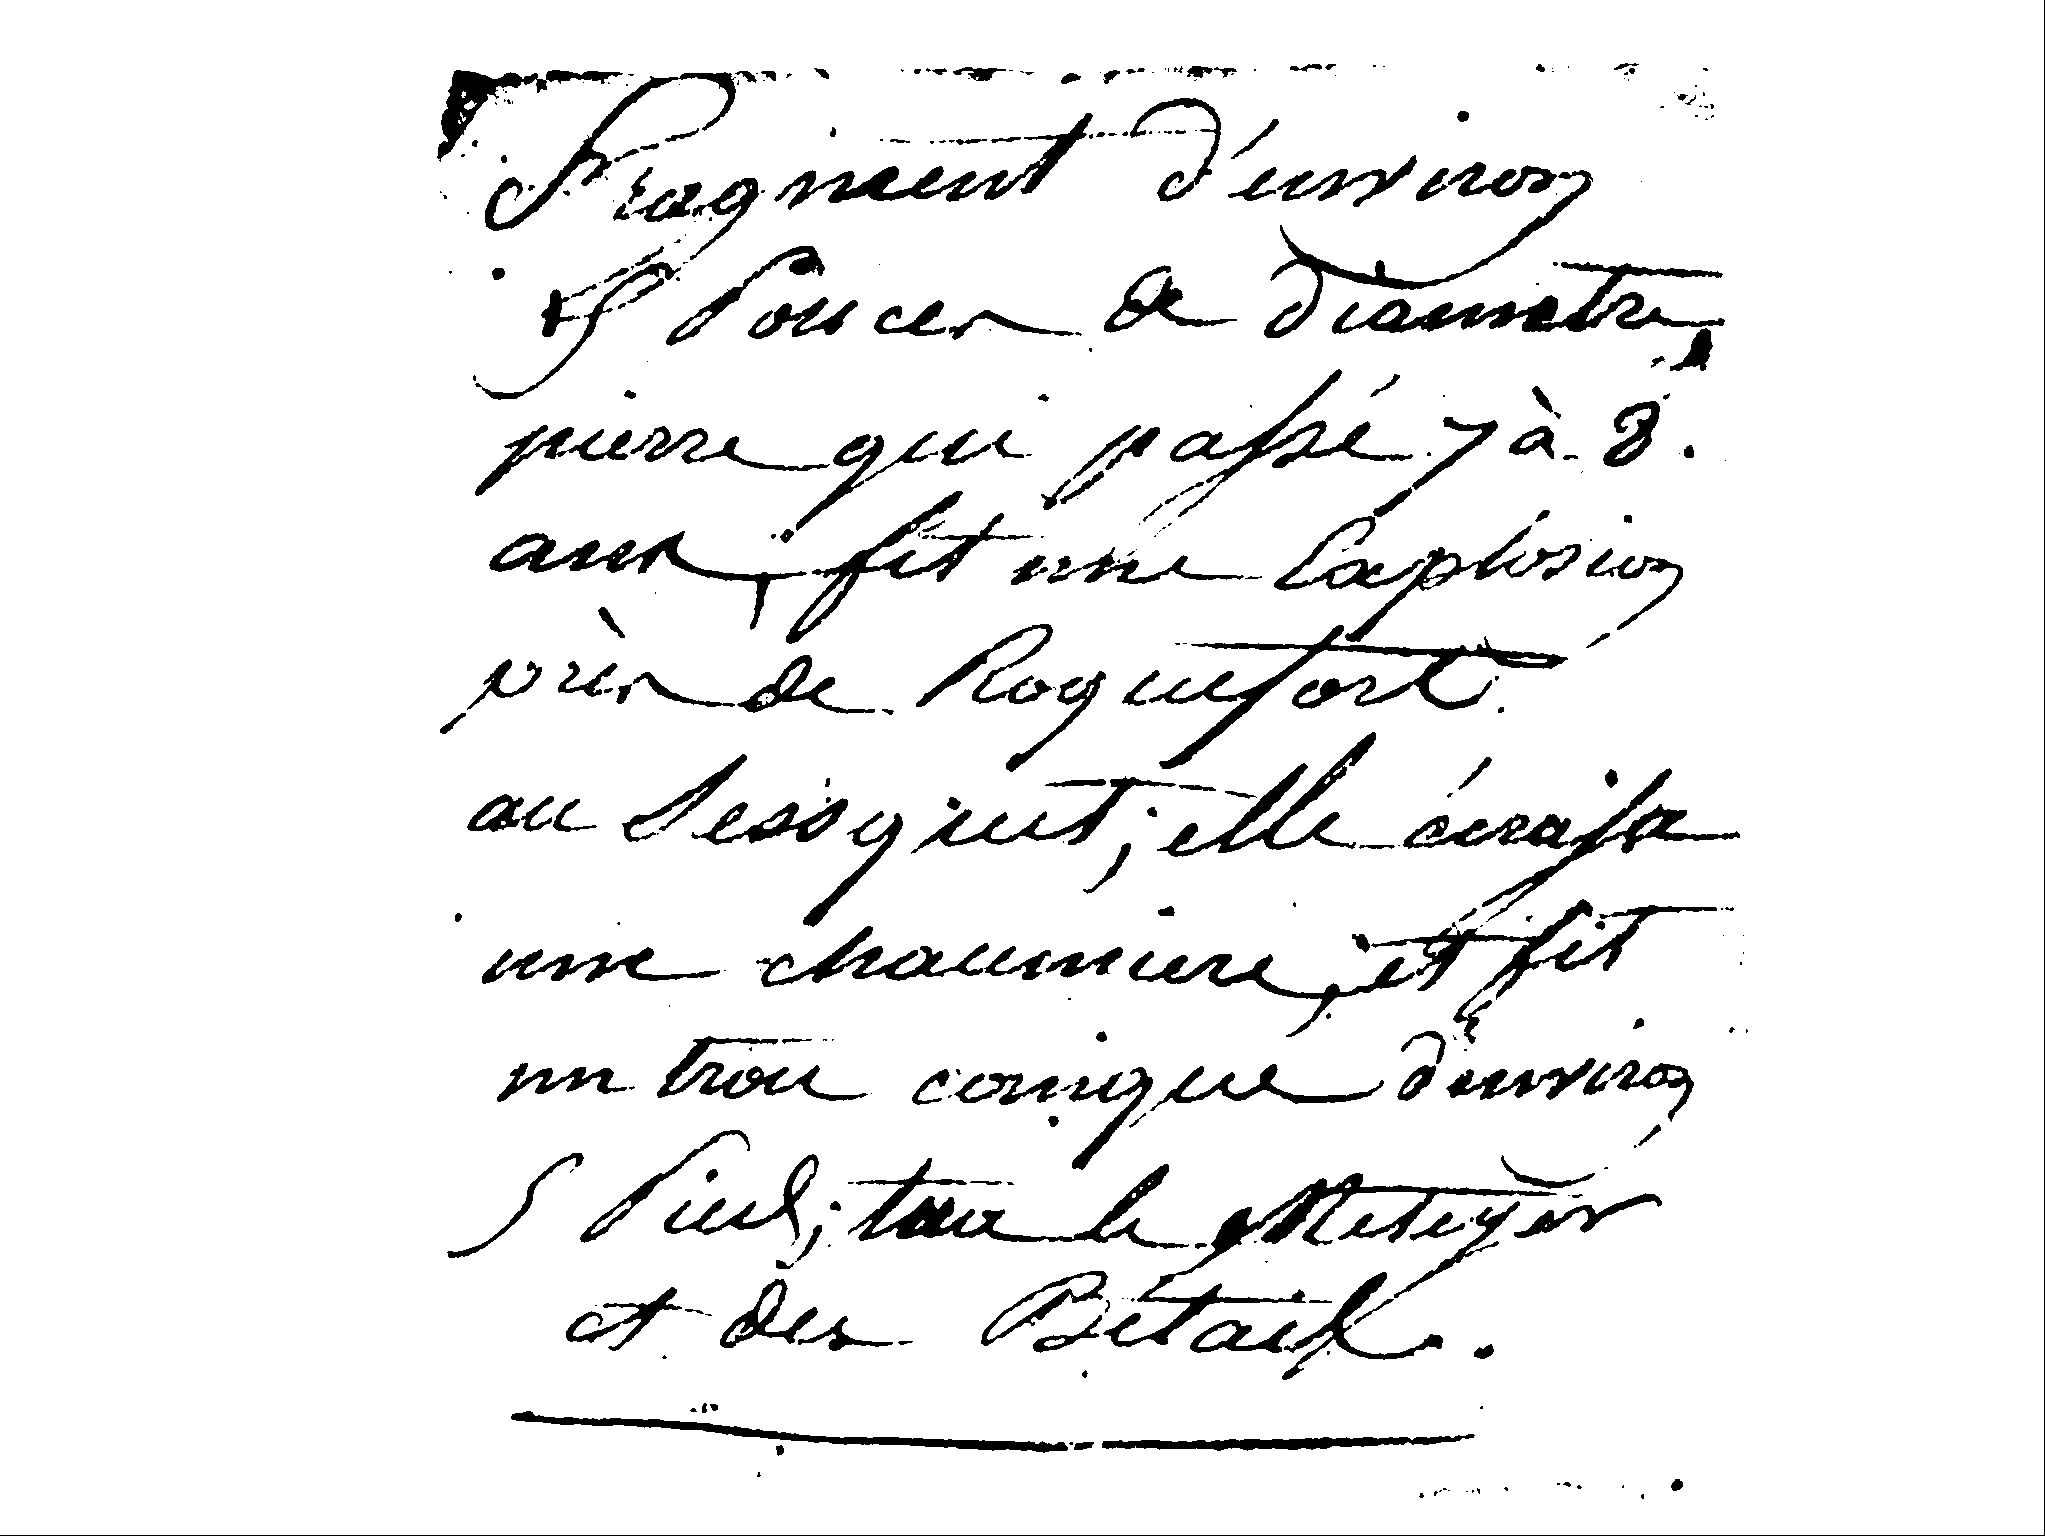 Fragment d'environ
5 Pouces de diametre
pierre qui passé 7 à 8.
ans, fit une Explosion
près de Roquefort.
au Sessquet; elle écrasa
une chaumiere, et fit
un trou conique d'environ
5 Pieds; tua le Meteyer
et des Bétail.